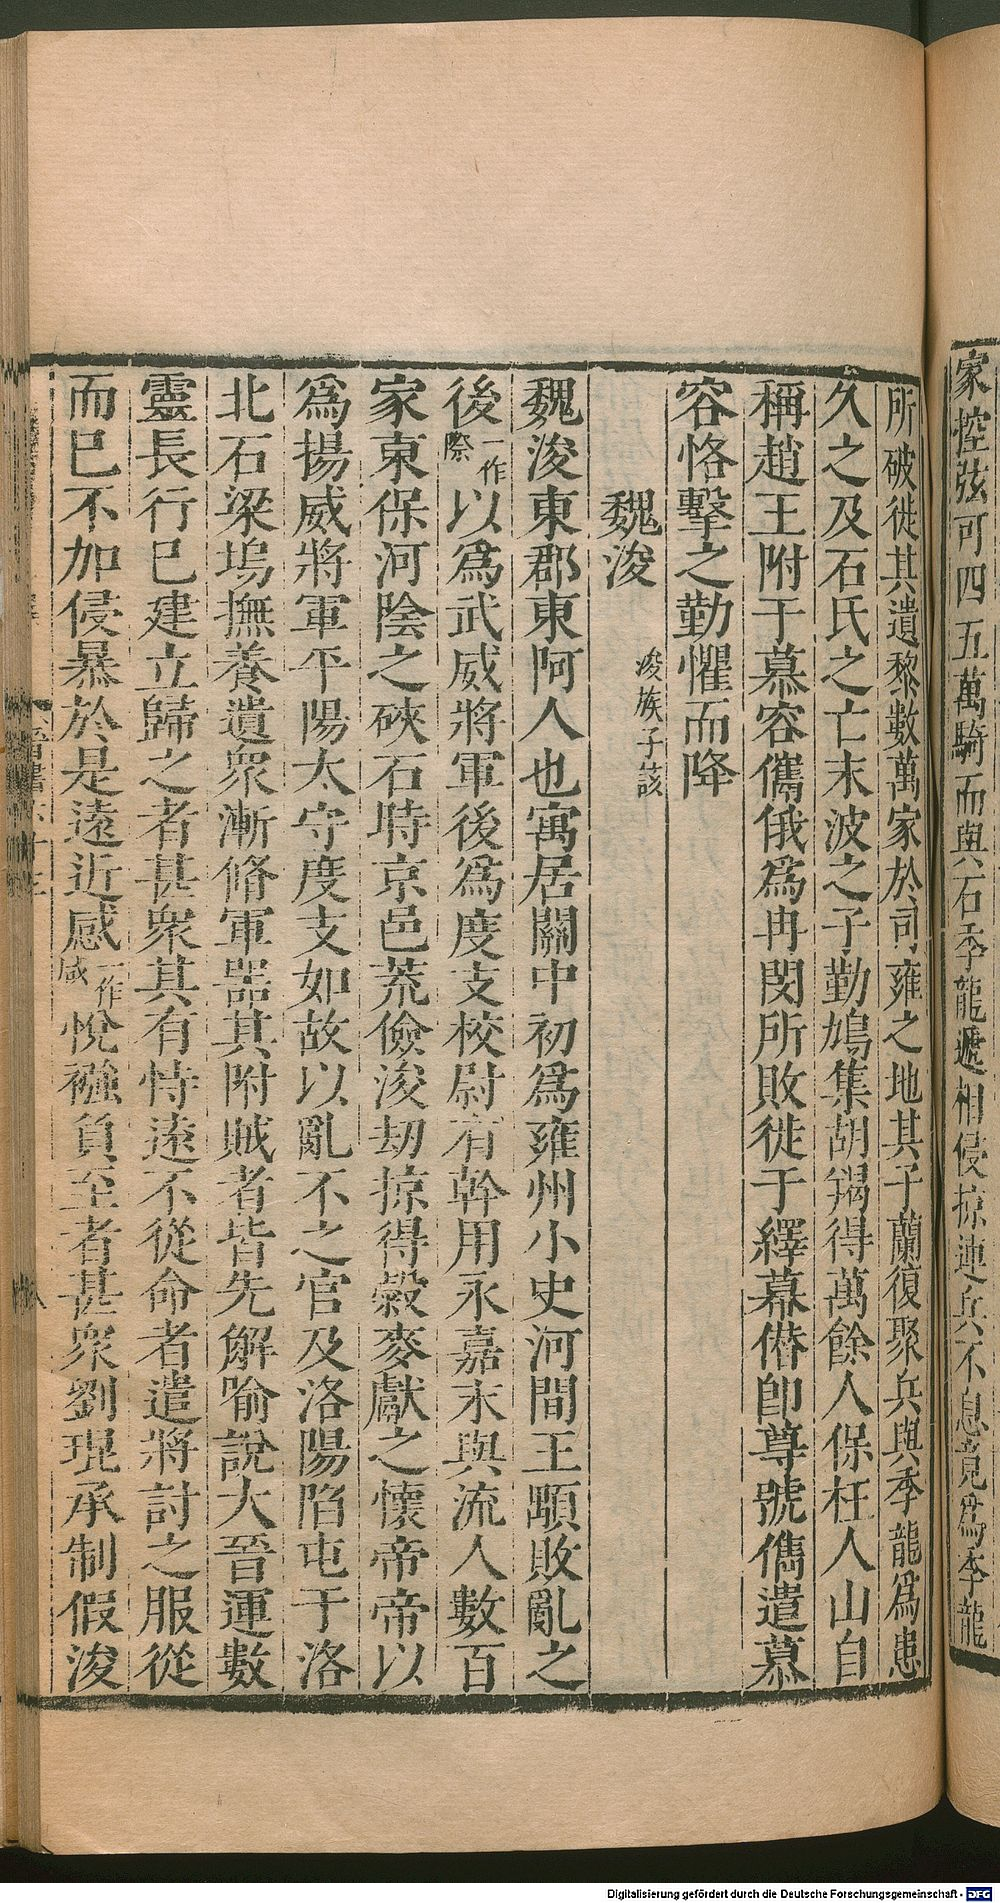 家控弦可四五萬騎而與石季龍遞相侵掠連兵不息竟爲季龍
所破徙其遺黎數萬家於司雍之地其子蘭復聚兵與季龍爲患
久之及石氏之亡末波之子勤鳩集胡羯得萬餘人保枉人山自
稱趙王附于慕容儁俄爲冉閔所敗徙于繹幕僭卽尊號儁遣慕
容恪擊之勤懼而降
魏浚 浚族子該
魏浚東郡東阿人也寓居關中初爲雍州小史河間王顒敗亂之
後一作際以爲武威將軍後爲度支校尉有幹用永嘉末與流人數百
家東保河陰之硤石時京邑荒儉浚劫掠得穀麥獻之懷帝帝以
爲揚威將軍平陽太守度支如故以亂不之官及洛陽陷屯于洛
北石梁塢撫養遺衆漸脩軍器其附賊者皆先解喻說大晉運數
靈長行已建立歸之者甚衆其有恃遠不從命者遣將討之服從
而已不加侵暴於是遠近感一作咸悅襁負至者甚衆劉琨承制假浚
八
Digitalisierung gefördert durch die Deutsche Forschungsgemeinschaft - DFG